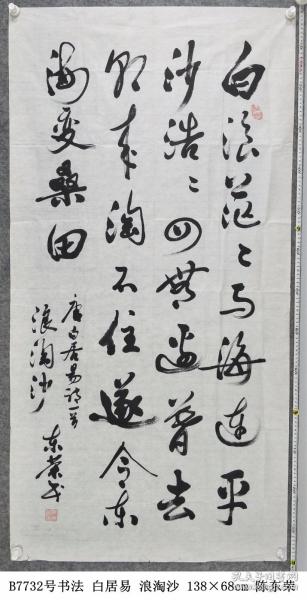 白浪茫〻与海连平
沙浩〻四無边暮去
朝来淘不住遂令东
海变桑田
唐白居易诗一首
浪淘沙 东荣书
B7732号书法 白居易 浪淘沙 138×68cm 陈东荣